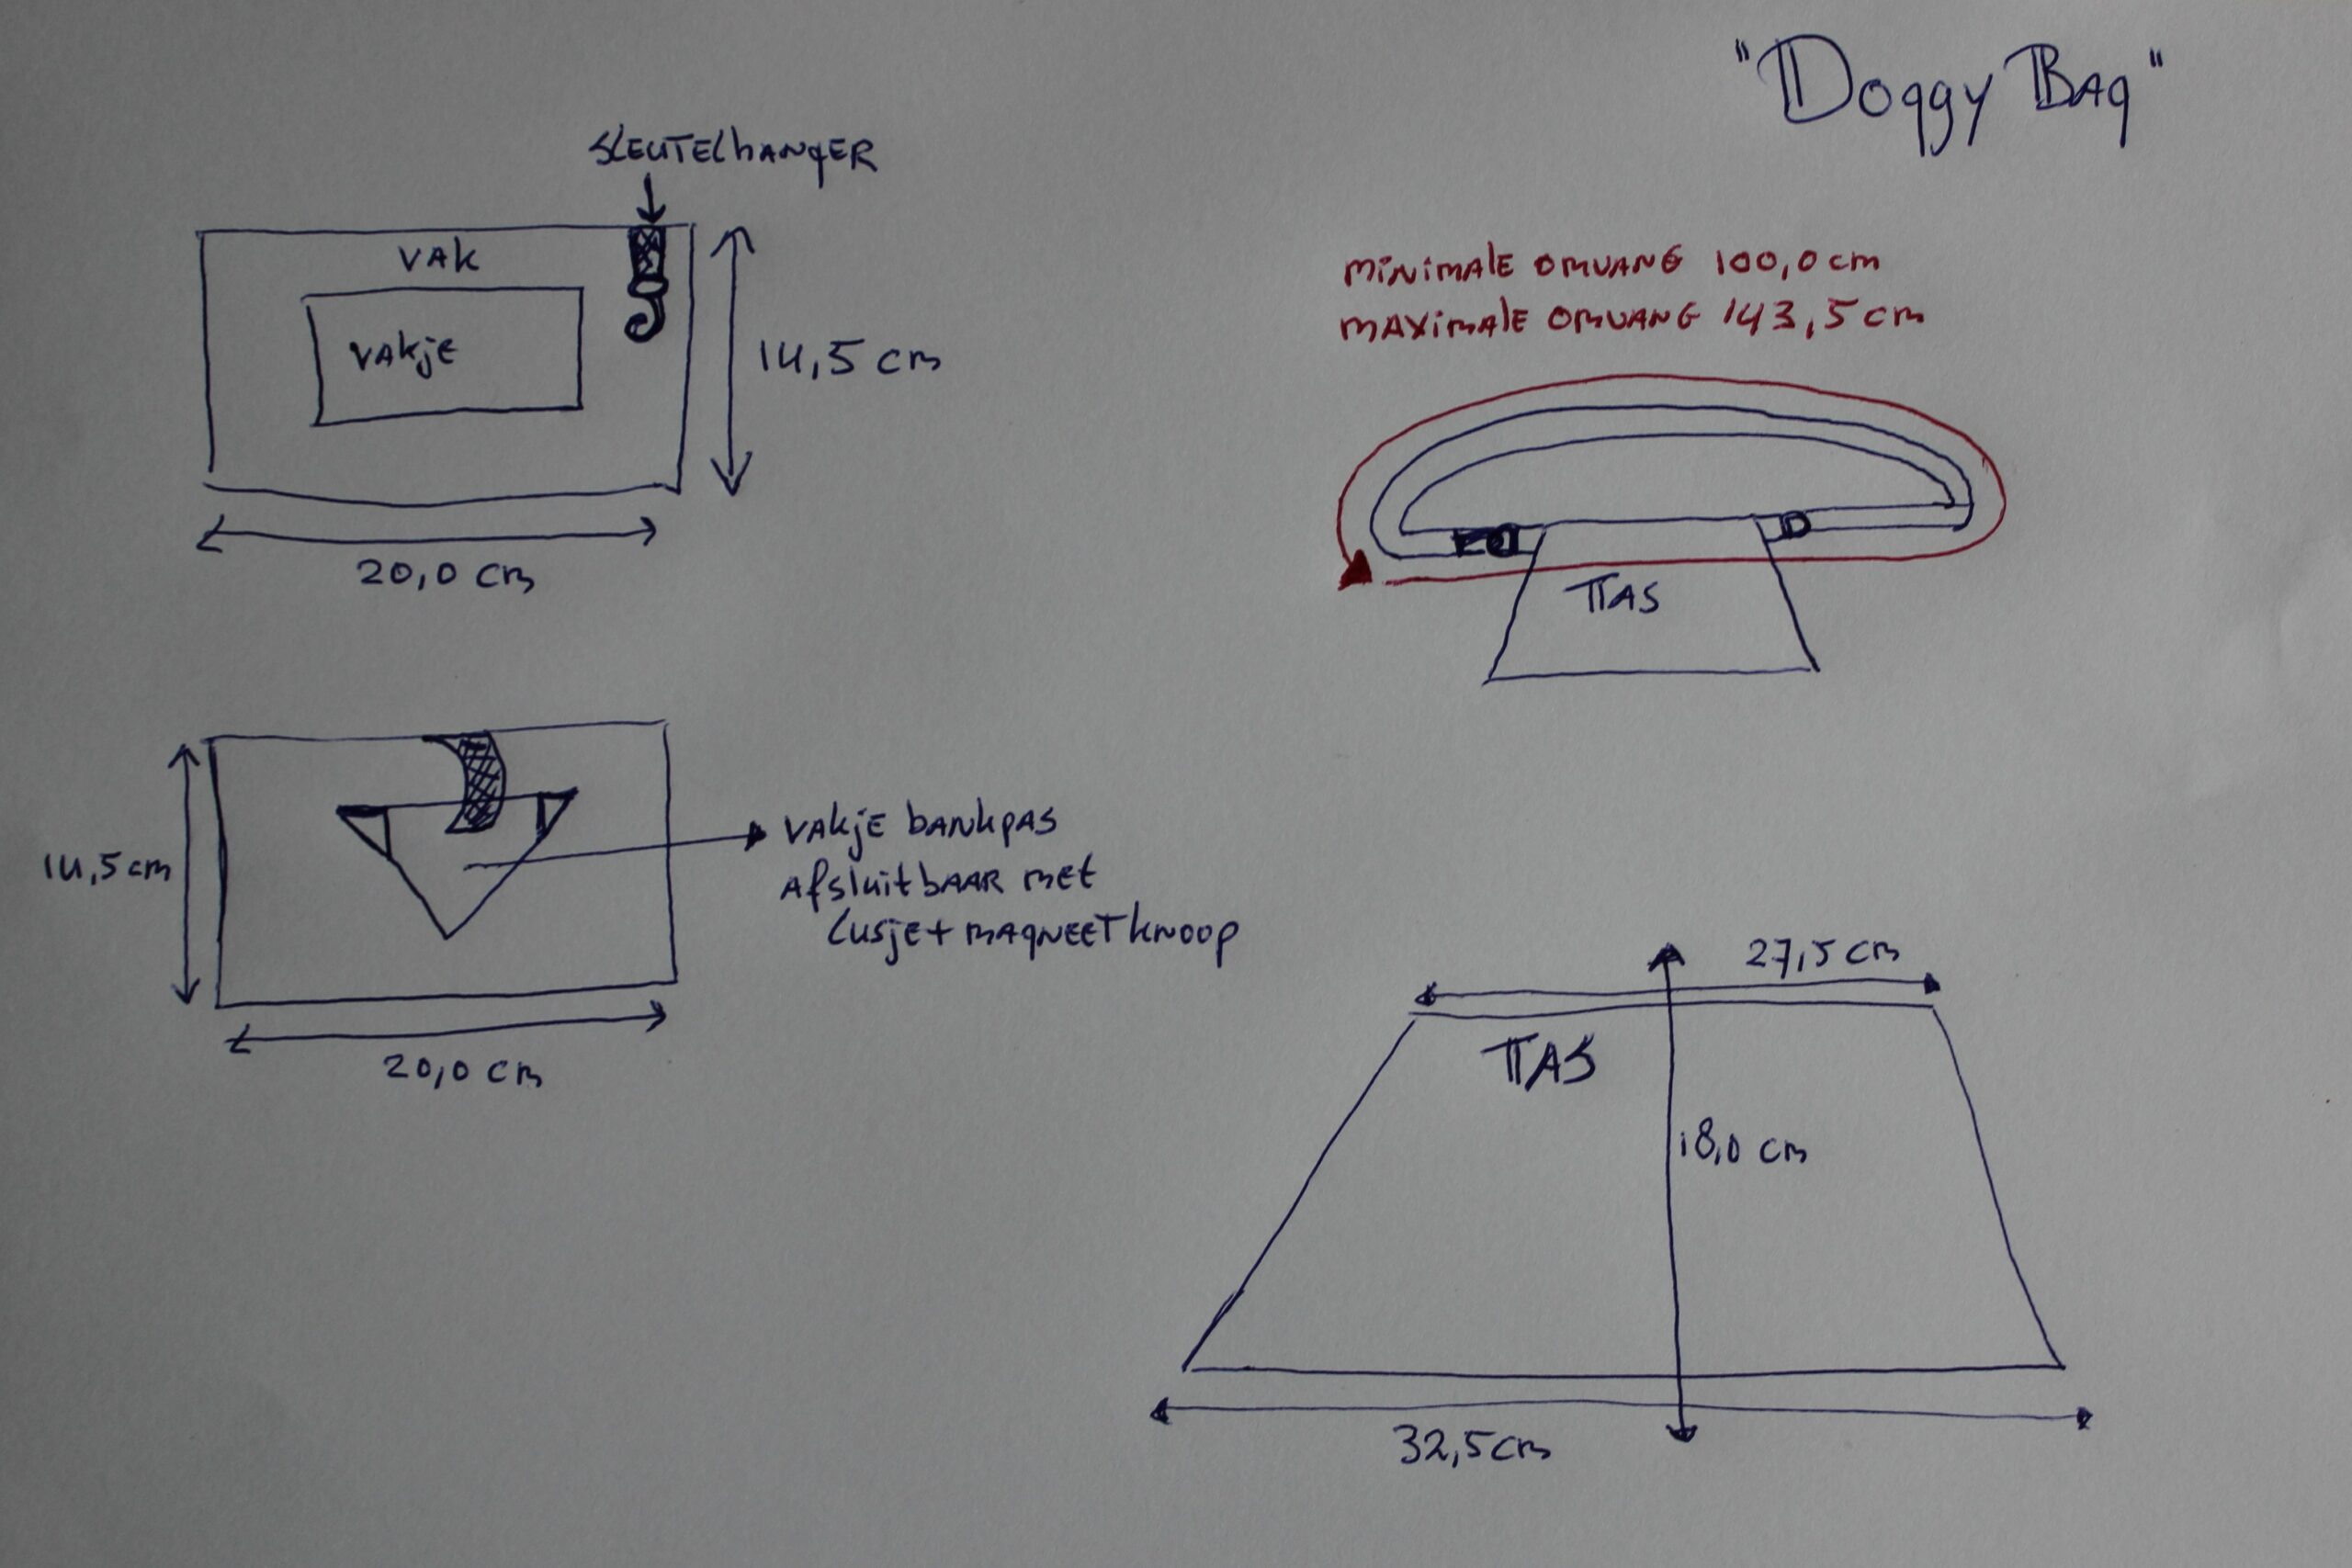 "Doggy Bag"
SLEUTELhANGER
VAK
VAKjE
14,5 cm
20,0 cm
MiNiMAlE OMVANG 100,0 cm
MAXiMAlE OMVANG 143,5 cm
TAS
14,5 cm
VAKjE bANKPAS
AfsluitbAAR MEt
lusjE + MAGNEETKNOOP
20,0 cm
27,5 cm
TAS
18,0 cm
32,5 cm